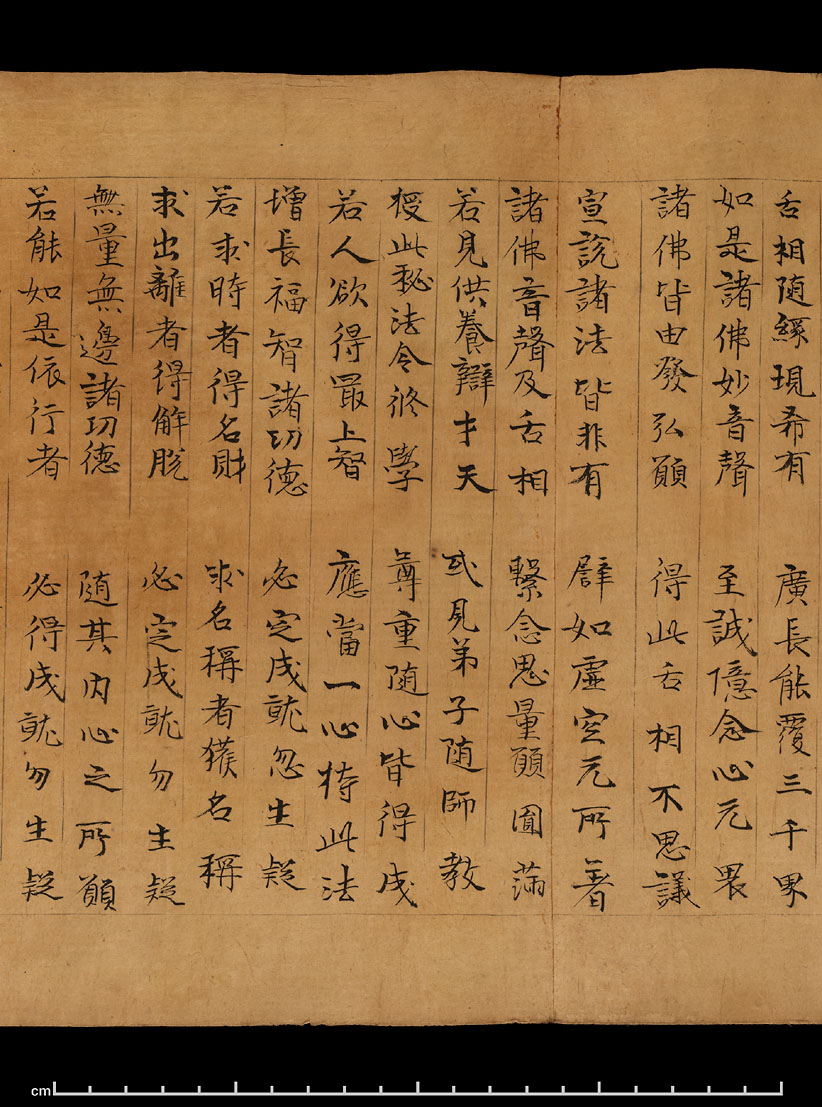 舌相随緣現希有　廣長能覆三千界
如是諸佛妙音聲　至誠億念心无畏
諸佛皆由發弘願　得此舌相不思議
宣說諸法皆非有　譬如虛空无所著
諸佛音聲及舌相　繫念思量願圓滿
若見供養辯才天　或見弟子随師教
授此秘法令修學　尊重随心皆得成
若人欲得最上智　應當一心持此法
增長福智諸功德　必定成就忽生疑
若求時者得名財　求名稱者獲名稱
求出離者得解脫　必定成就勿生疑
無量無邊諸功德　随其内心之所願
若能如是依行者　必得成就勿生疑
cm